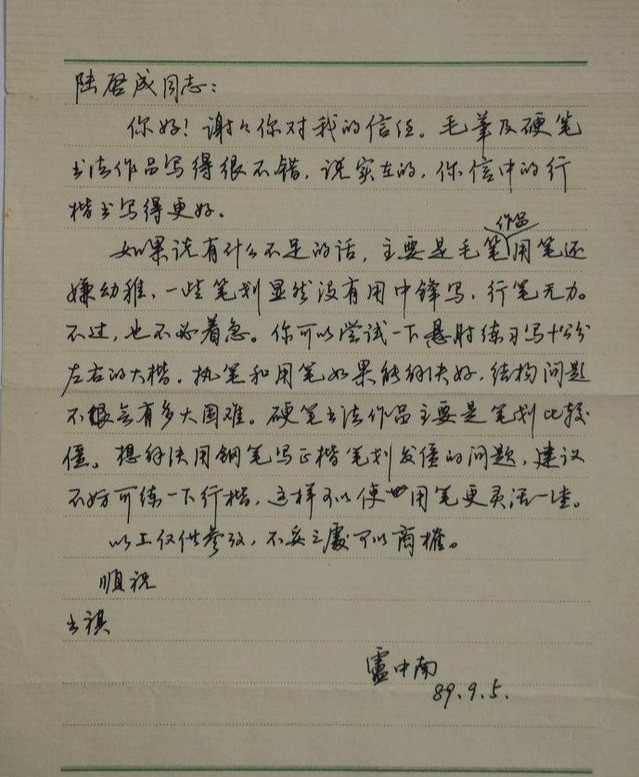 陆启成同志：
你好！谢谢你对我的信任。毛筆及硬笔
书法作品写得很不错，说实在的，你信中的行
楷书写得更好。
如果说有什么不足的话，主要是毛笔作品用笔还
嫌幼稚，一些笔划显然没有用中锋写，行笔无力。
不过，也不必着急。你可以尝试一下悬肘练习写十公分
左右的大楷。执笔和用笔如果能解决好，结构问题
不会有多大困难。硬笔书法作品主要是笔划比较
僵。想解决用钢笔写正楷笔划发僵的问题，建议
不妨可练一下行楷，这样可以使用笔更灵活一些。
以上仅供参考，不妥之處可以商榷。
順祝
书祺
盧中南
89.9.5.